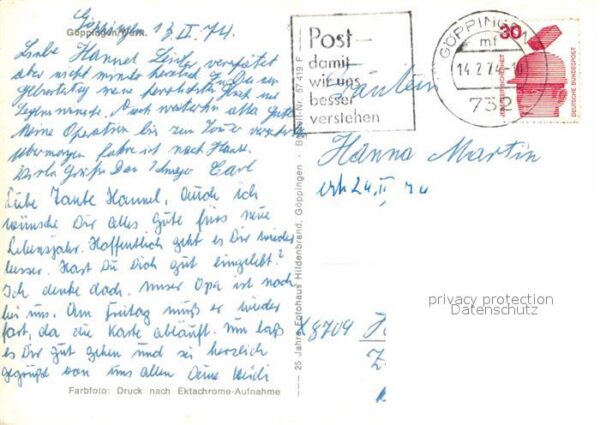 Göppingen/Württ.
Göppingen 13.II.74.
Liebe Hannel Leider verspätet
aber nicht minder herzlich Dir zu
Geburtstag meine herzlichsten Glück und
Segenswünsche. Auch weiterhin alles Gute
Meine Operation bis zum
übermorgen fahre ich nach Hause.
Viele Grüße Dein Carl
Liebe Tante Hannel, Auch ich
wünsche Dir alles Gute fürs neue
Lebensjahr. Hoffentlich geht es Dir wieder
besser. Hast Du Dich gut eingelebt?
Ich denke doch. Unser Opa ist noch
bei uns. Am Freitag muß er wieder
fort, da die Karte abläuft. Nun laß
es Dir gut gehen und sei herzlich
gegrüßt von uns allen Deine Heidi
Farbfoto: Druck nach Ektachrome-Aufnahme
25 Jahre Fotohaus Hildenbrand, Göppingen - Bestell-Nr. 67 419 F
Post-
damit
wir uns
besser
verstehen
GÖPPINGEN 1
mf
14.2.74
732
30
DEUTSCHE BUNDESPOST
Fräulein
Hanna Martin
erh 24.II.74
8709
privacy protection
Datenschutz